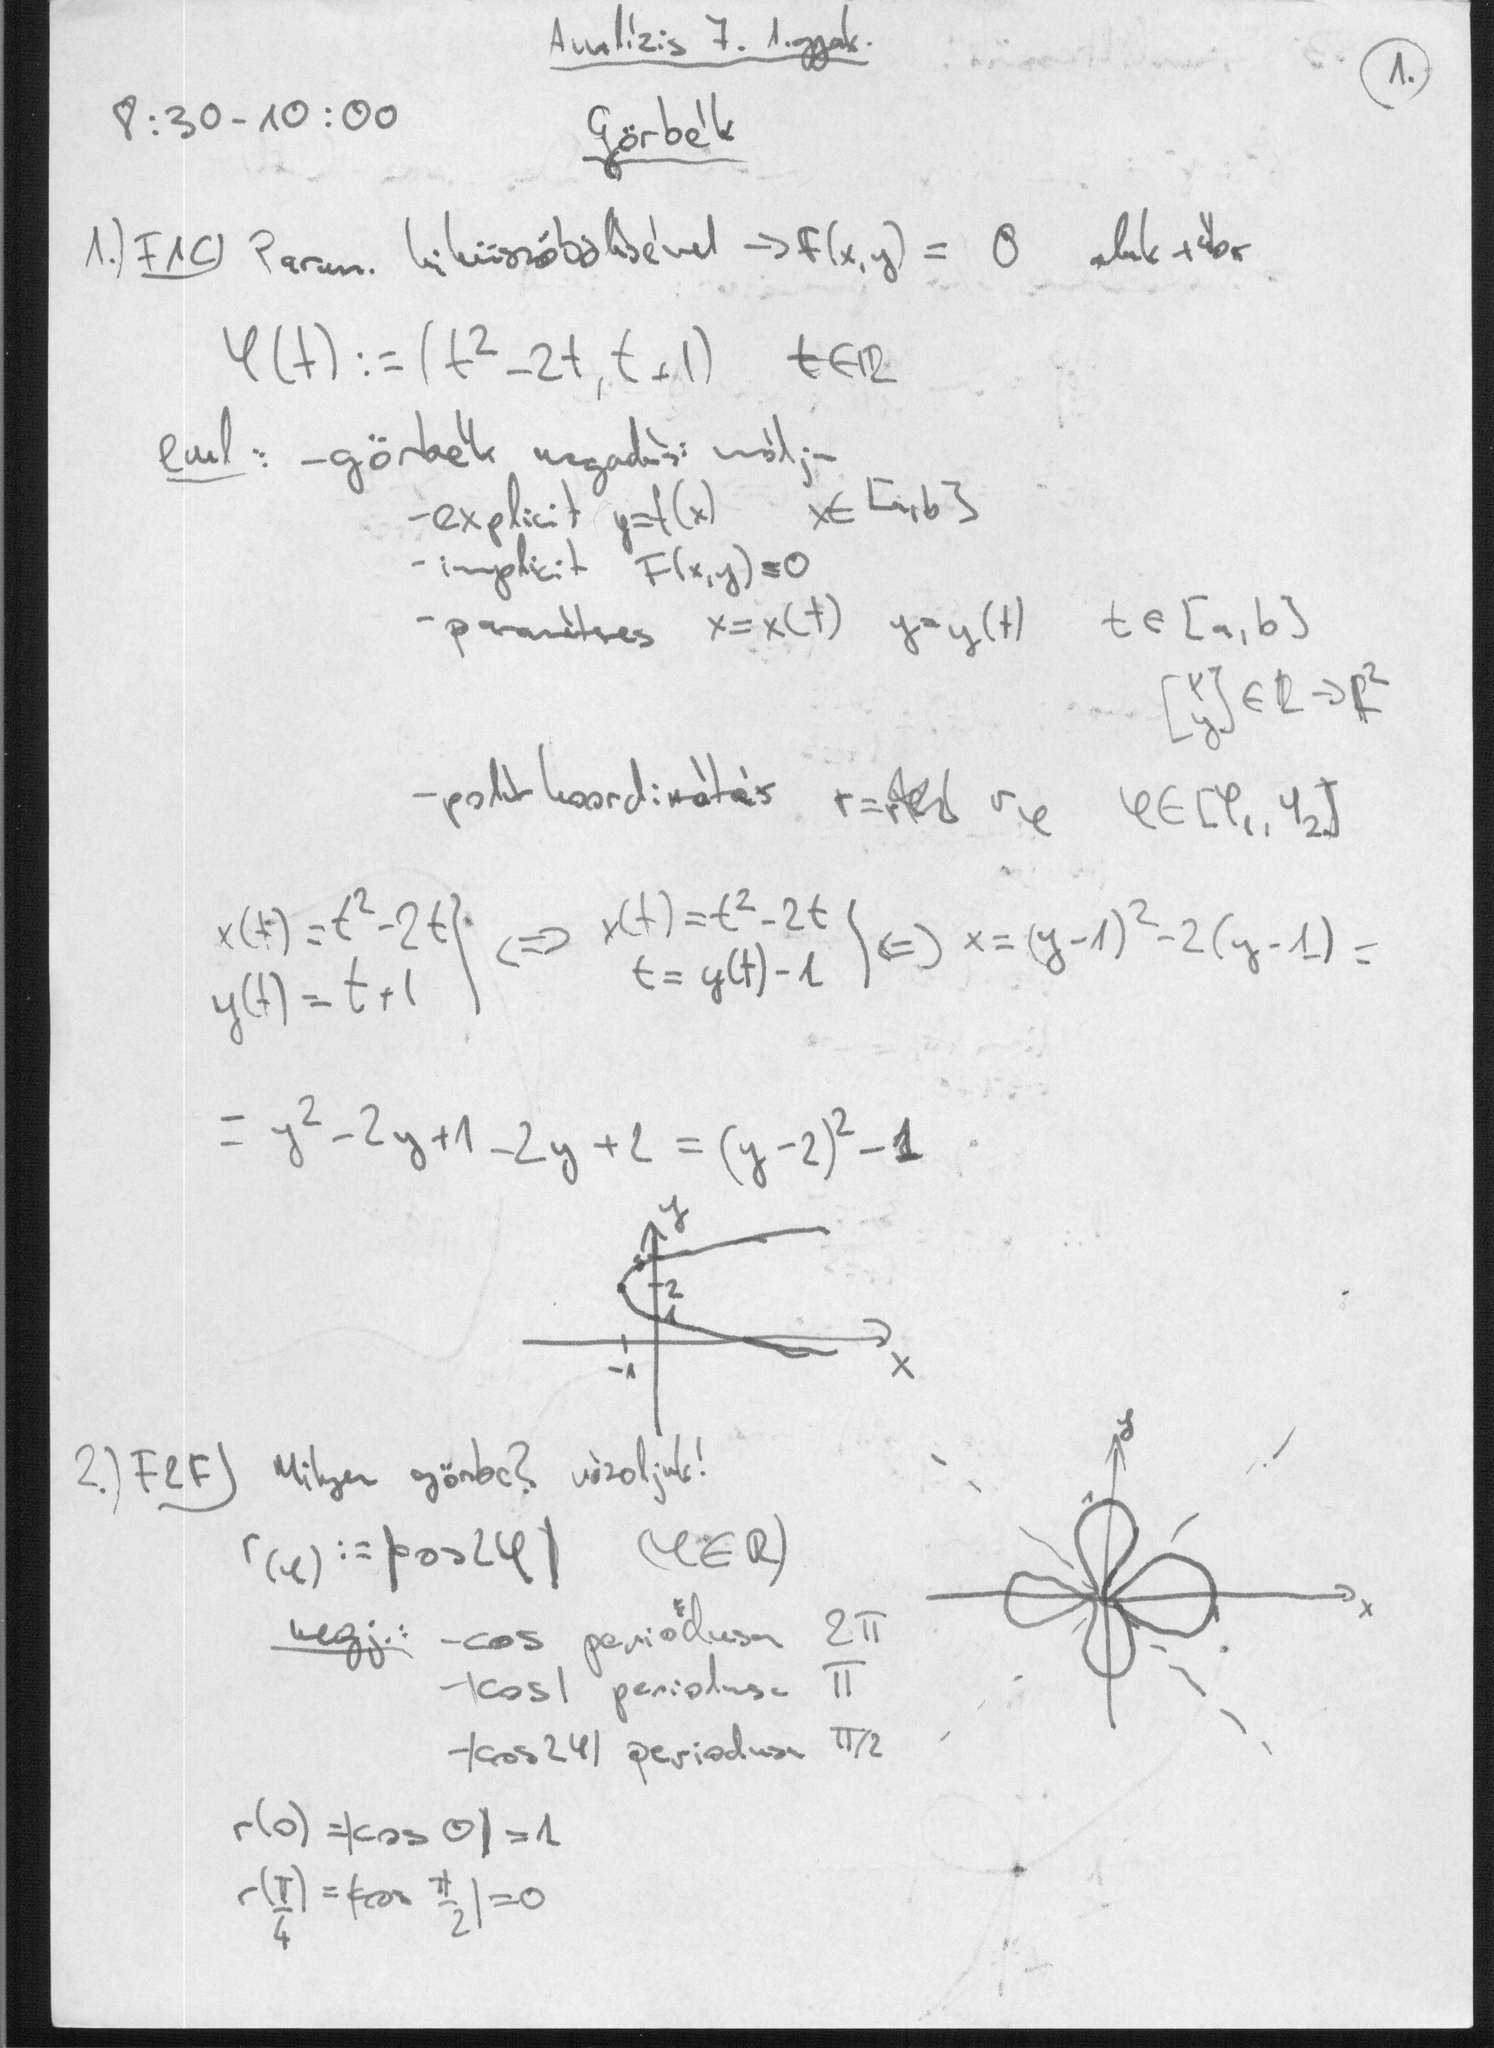 Analízis 7. 1. gyak.
1.
8:30-10:00
Görbék
1.) F1C) Param. kiküszöbölésével → F(x,y) = 0 alak
φ(t) := (t² - 2t, t+1) t∈ℝ
eml: - görbék megadási módja
- explicit y=f(x) x∈[a,b]
- implicit F(x,y)=0
- paraméteres x=x(t) y=y(t) t∈[a,b]
[x y] ∈ ℝ → ℝ²
- polárkoordinátás r= r_φ φ∈[φ₁, φ₂]
x(t) = t² - 2t } ⇔ x(t) = t² - 2t } ⇔ x = (y-1)² - 2(y-1) =
y(t) = t+1 t = y(t) - 1
= y² - 2y + 1 - 2y + 2 = (y-2)² - 1
y
3
2
1
-1
x
2.) F2F) Milyen görbe? vázoljuk!
r(φ) := |cos2φ| (φ∈ℝ)
megj.: - cos periódusa 2π
- |cos| periodusa π
- |cos2φ| periodusa π/2
r(0) = |cos 0| = 1
r(π/4) = |cos π/2| = 0
y
1
x
1